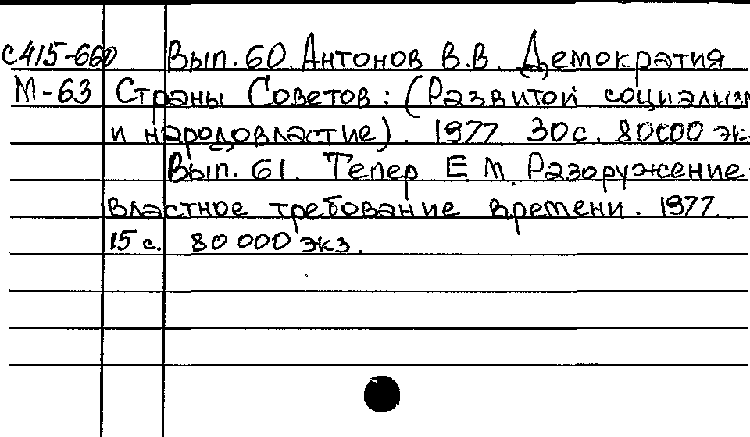 С415-660 Вып. 60. Антонов В.В. Демократия
М-63 Страны Советов: (Развитой социализм
и народовластие). 1977. 30 с. 80000 экз
Вып. 61. Тепер Е.М. Разоружение -
властное требование времени. 1977.
15 с. 80 000 экз.